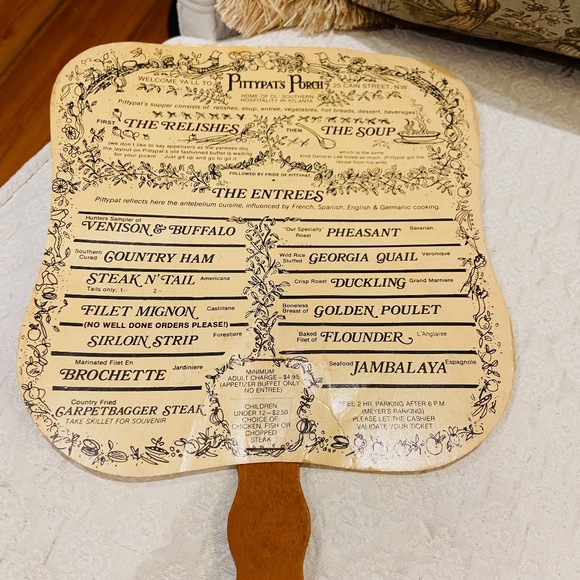 WELCOME YA'LL TO PITTYPAT'S PORCH 25 CAIN STREET, N.W.
HOME OF OL' SOUTHERN
HOSPITALITY IN ATLANTA
Pittypat's supper consists of relishes, soup, entree, vegetables, hot breads, dessert, beverages
FIRST THE RELISHES
(we don't like to say appetizers as the yankees do)
the layout on Pittypat's old fashioned buffet is waiting
for your pickin' Just git up and go to git it
THEN THE SOUP
which is the same
kind General Lee loved so much. (Pittypat got the
recipe from his wife)
FOLLOWED BY PRIDE OF PITTYPAT
THE ENTREES
Pittypat reflects here the antebellum cuisine, influenced by French, Spanish, English & Germanic cooking.
Hunters Sampler of
VENISON & BUFFALO
Southern Cured COUNTRY HAM
STEAK N' TAIL Americana
Tails only: 1– 2–
FILET MIGNON Castillane
(NO WELL DONE ORDERS PLEASE!)
SIRLOIN STRIP Forestiere
Marinated Filet En
BROCHETTE Jardiniere
Country Fried
CARPETBAGGER STEAK
TAKE SKILLET FOR SOUVENIR
Our Specialty Roast PHEASANT Bavarian
Wild Rice Stuffed GEORGIA QUAIL Veronique
Crisp Roast DUCKLING Grand Marniere
Boneless Breast of GOLDEN POULET
Baked Filet of FLOUNDER L'Anglaise
Seafood JAMBALAYA Espagnole
MINIMUM
ADULT CHARGE–$4.95
(APPETIZER BUFFET ONLY
NO ENTREE)
CHILDREN
UNDER 12–$2.50
CHOICE OF
CHICKEN, FISH OR
CHOPPED
STEAK
2 HR. PARKING AFTER 6 P.M.
(MEYER'S PARKING)
PLEASE LET THE CASHIER
VALIDATE YOUR TICKET